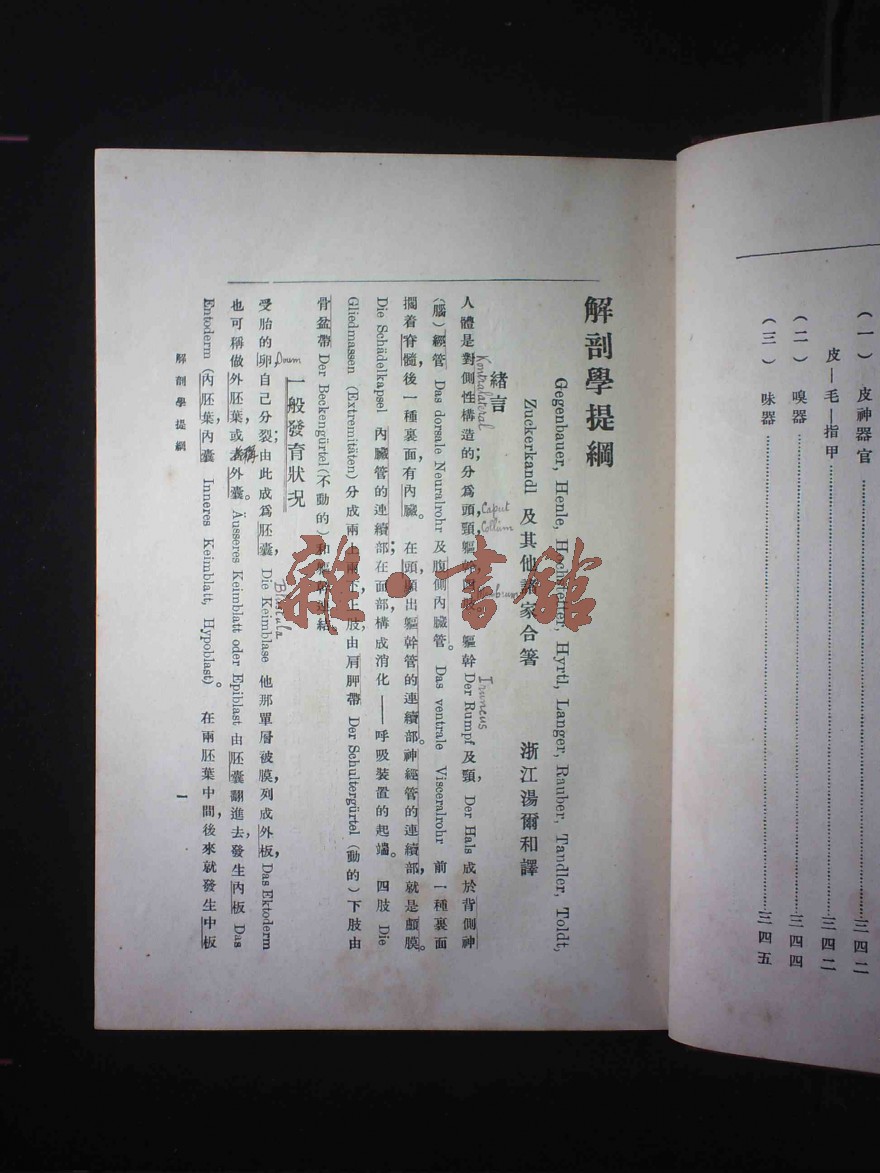 解剖學提綱
Gegenbauer, Henle, Hochstetter, Hyrtl, Langer, Rauber, Tandler, Toldt,
Zuckerkandl 及其他諸家合著 浙江湯爾和譯
緒言
Kontralateral Caput Collum Truncus
人體是對側性構造的;分爲頭,頸,軀幹,四肢。軀幹 Der Rumpf 及頸, Der Hals 成於背側神
(腦)經管 Das dorsale Neuralrohr 及腹側內臟管。 Das ventrale Visceralrohr 前一種裏面
擱着脊髓,後一種裏面有內臟。 在頭顱出軀幹管的連續部。神經管的連續部,就是顱膜。
Die Schädelkapsel 內臟管的連續部;在面部,構成消化——呼吸裝置的起端。 四肢 Die
Gliedmassen (Extremitäten) 分成兩上兩下;上肢由肩胛帶 Der Schultergürtel (動的) 下肢由
骨盆帶 Der Beckengürtel (不動的) 和軀幹連結。
一般發育狀况
Blastula
受胎的卵自己分裂;由此成爲胚囊, Die Keimblase 他那單層被膜,列成外板, Das Ektoderm
也可稱做外胚葉,或 外囊。 Äusseres Keimblatt oder Epiblast 由胚囊翻進去,發生內板 Das
Entoderm (內胚葉,內囊 Inneres Keimblatt, Hypoblast)。 在兩胚葉中間,後來就發生中板
解剖學提綱
1
(一) 皮神器官 三四二
皮—毛—指甲 三四二
(二) 嗅器 三四四
(三) 味器 三四五
雜·書館